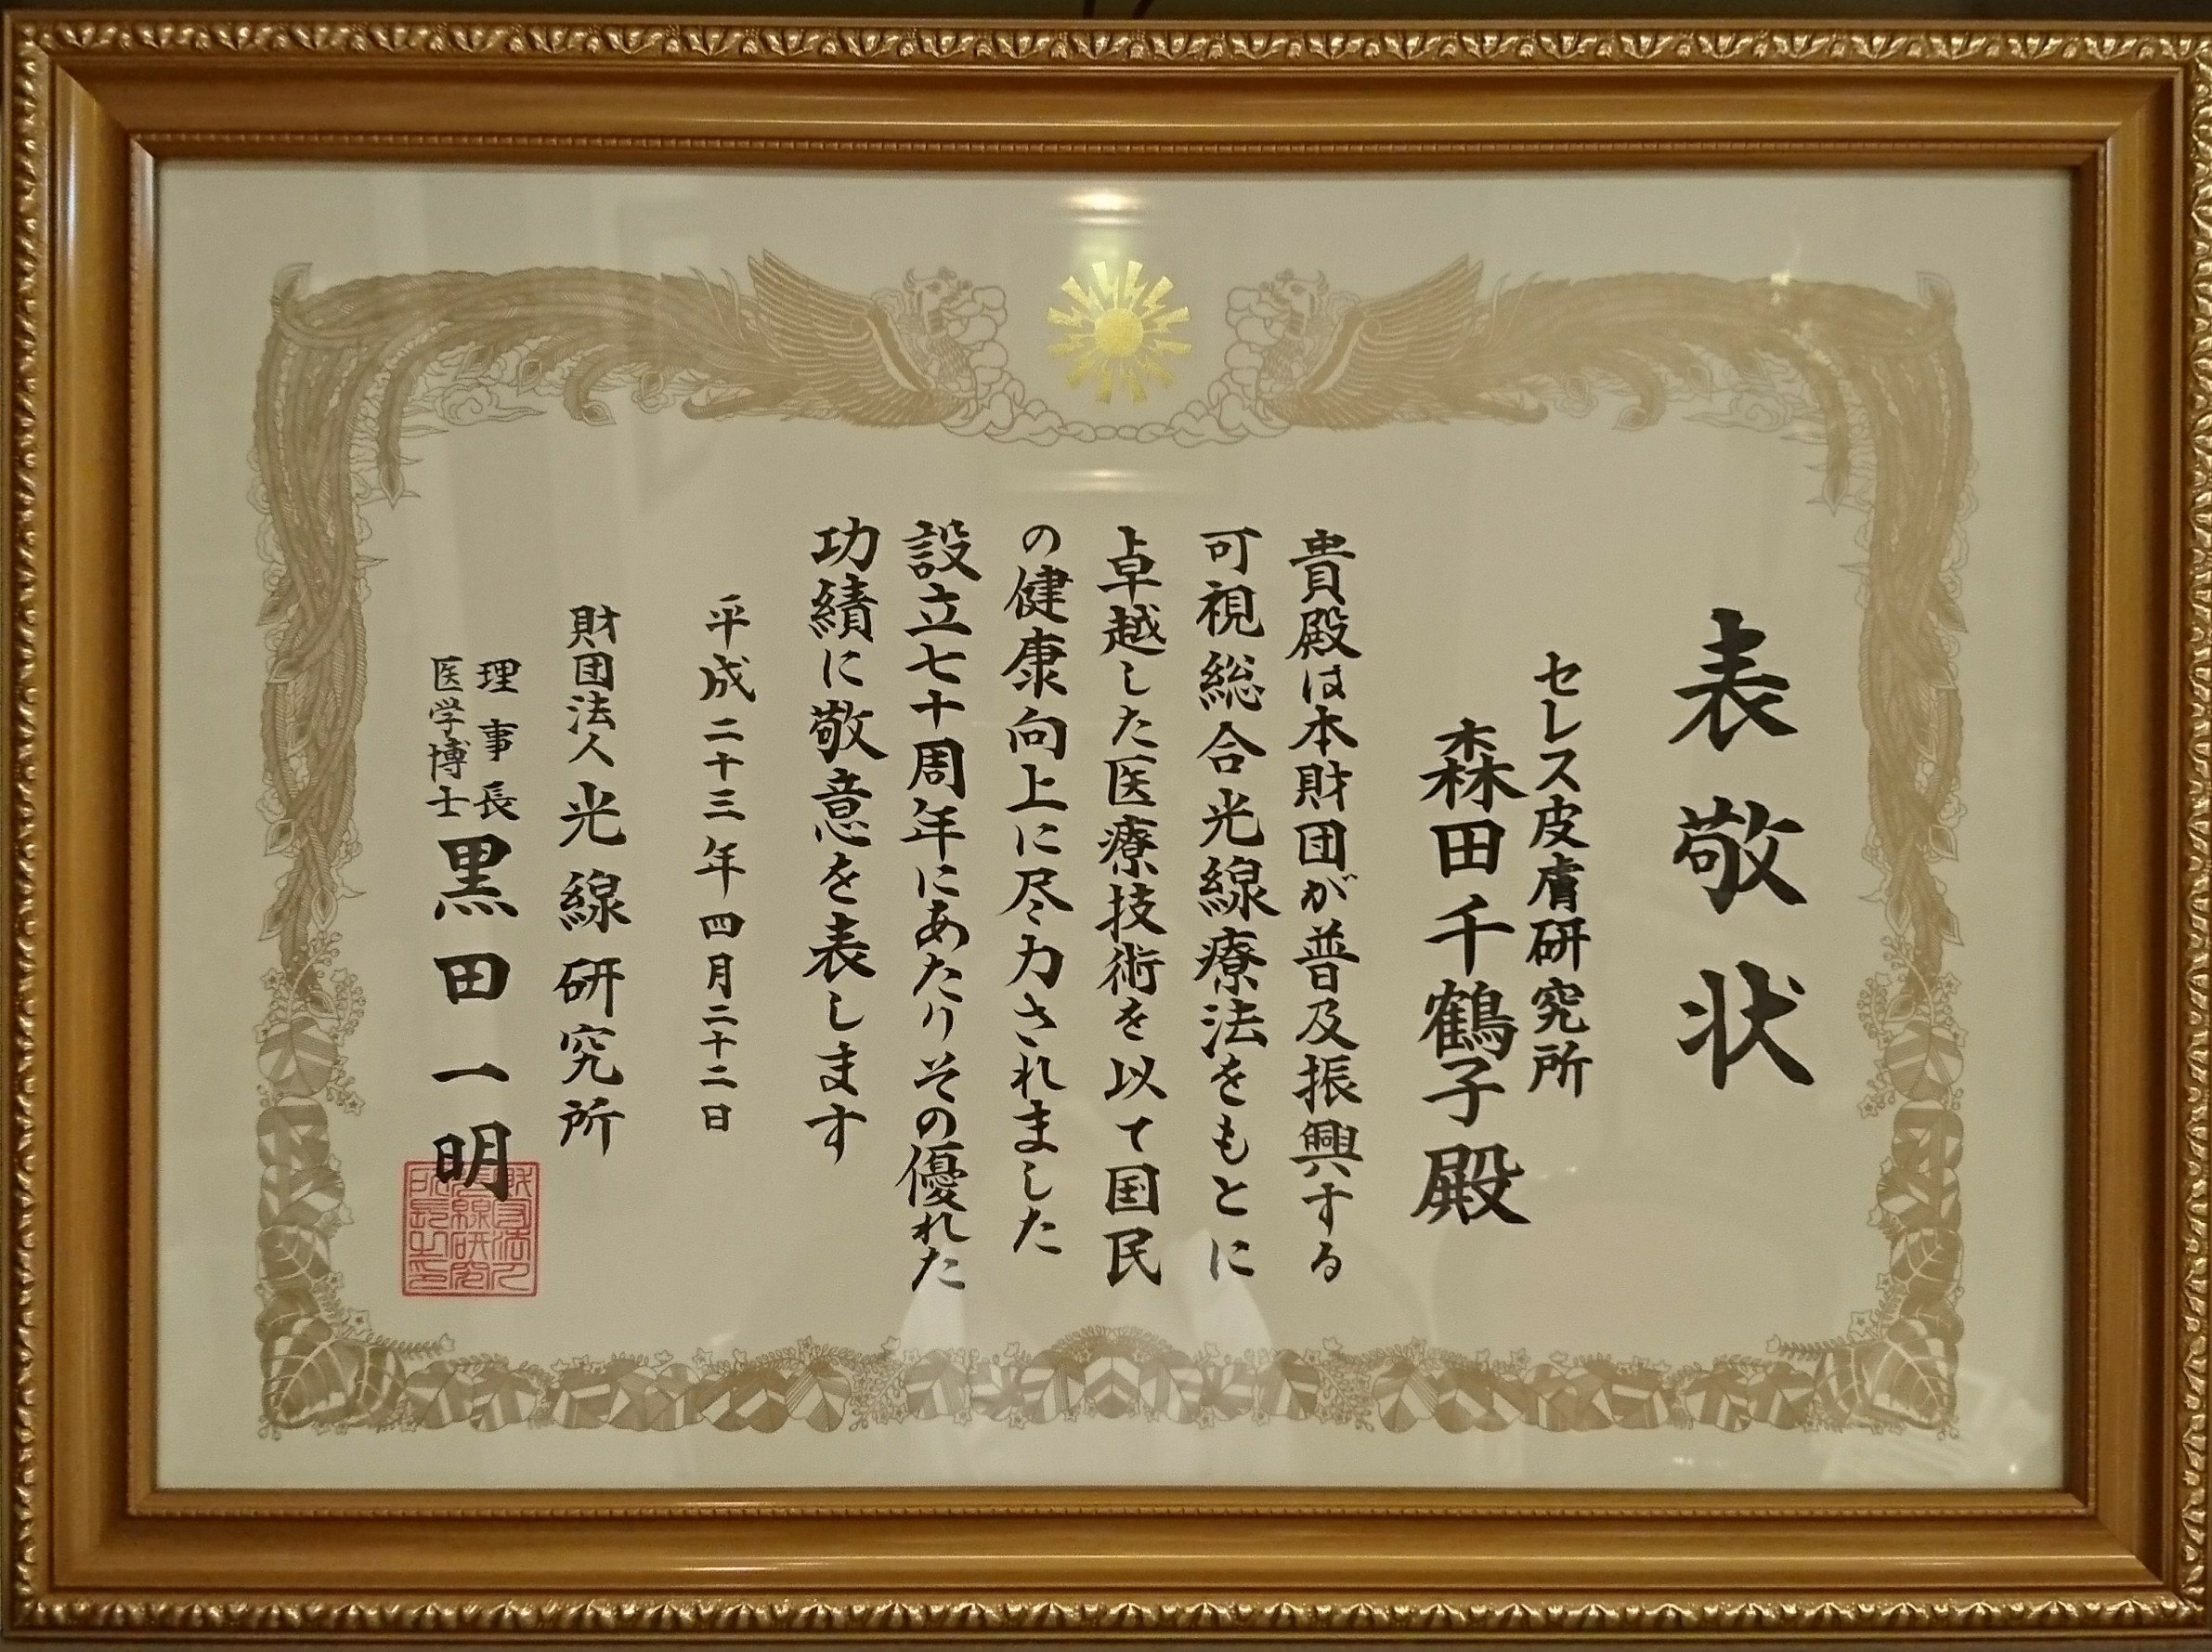 表敬状
セレス皮膚研究所
森田千鶴子殿
貴殿は本財団が普及振興する
可視総合光線療法をもとに
卓越した医療技術を以て国民
の健康向上に尽力されました
設立七十周年にあたりその優れた
功績に敬意を表します
平成二十三年四月二十二日
財団法人光線研究所
理事長
医学博士
黒田一明